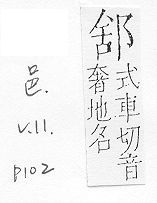 邑.
V.11.
P102
式車切音
奢地名